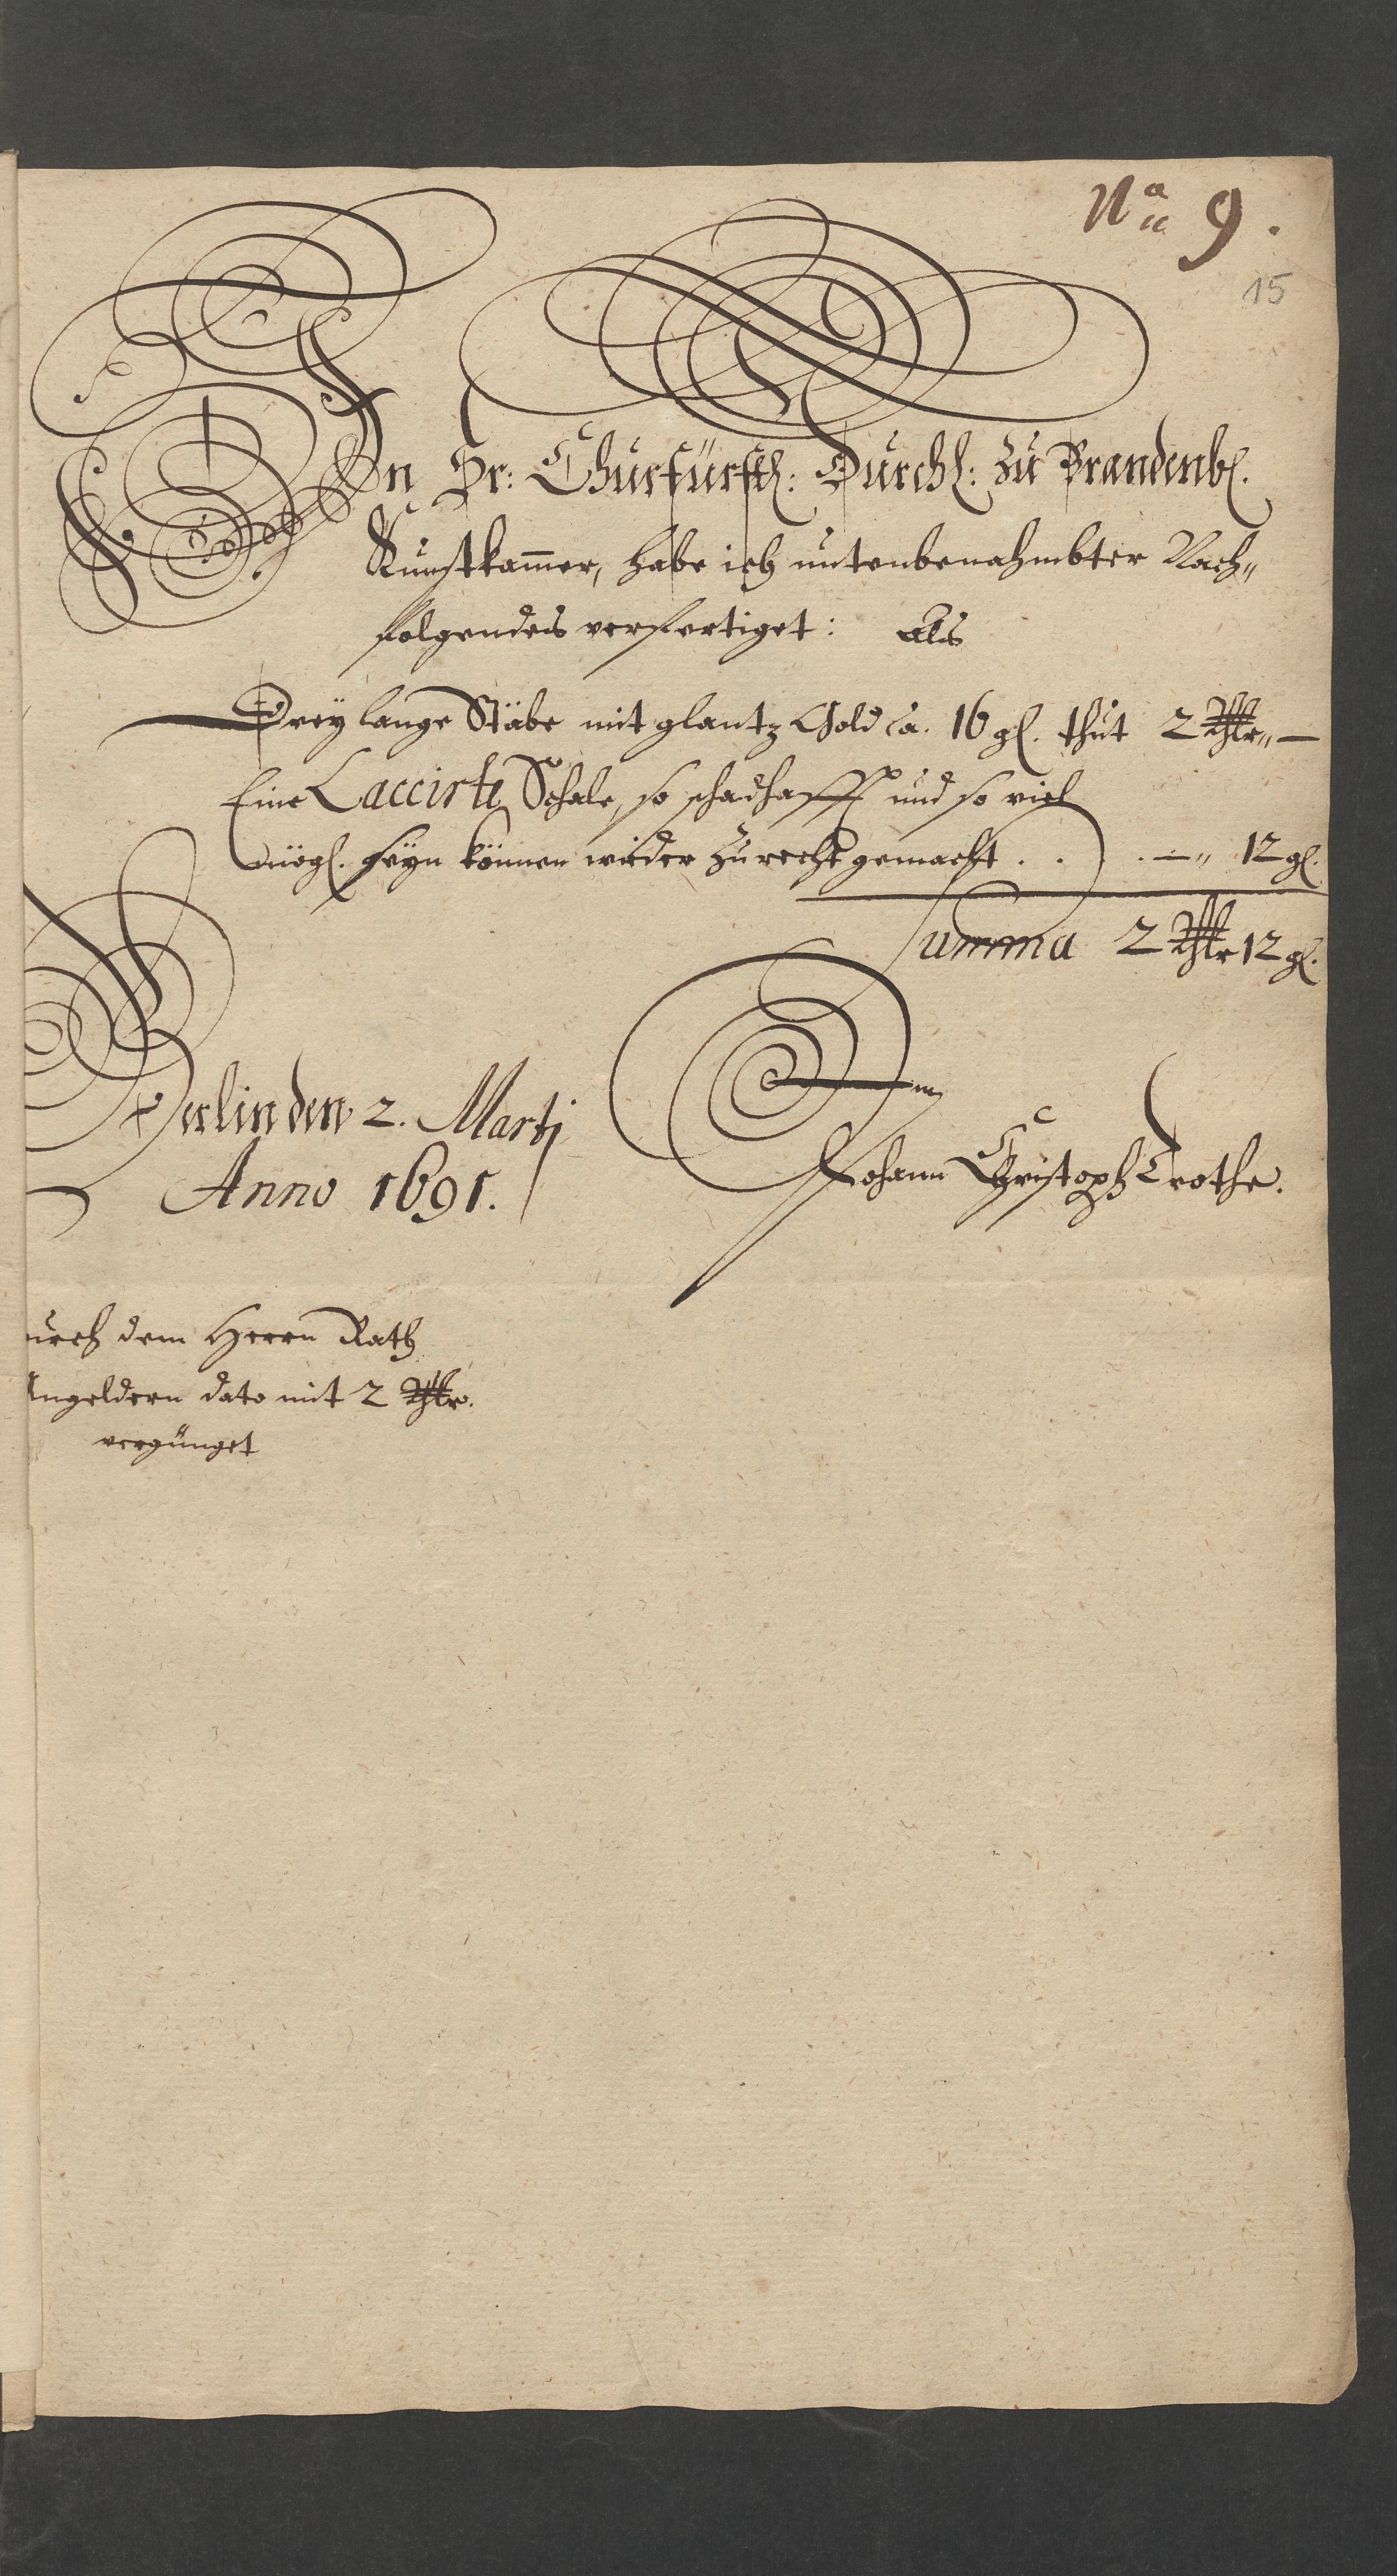 Na 9.
15
In Sr: Churfürstl: Durchl: zu Brandenb.
Kunstkam̄er, habe ich untenbenahmbter Nach„
folgendes verfertiget: als
Drey lange Stäbe mit glantz Gold à. 16 gl. thut 2 Thlr„ —
Eine Laccirte Schale, so schadhafft und so viel
mögl. seyn können wieder zurecht gemacht . . . —„ 12 gl.
Summa 2 Thlr 12 gl.
Berlin den 2. Martj
Anno 1691.
Johann Christoph Trothe.
urch dem Herrn Rath
ngeldern dato mit 2 Thlr.
vergünget